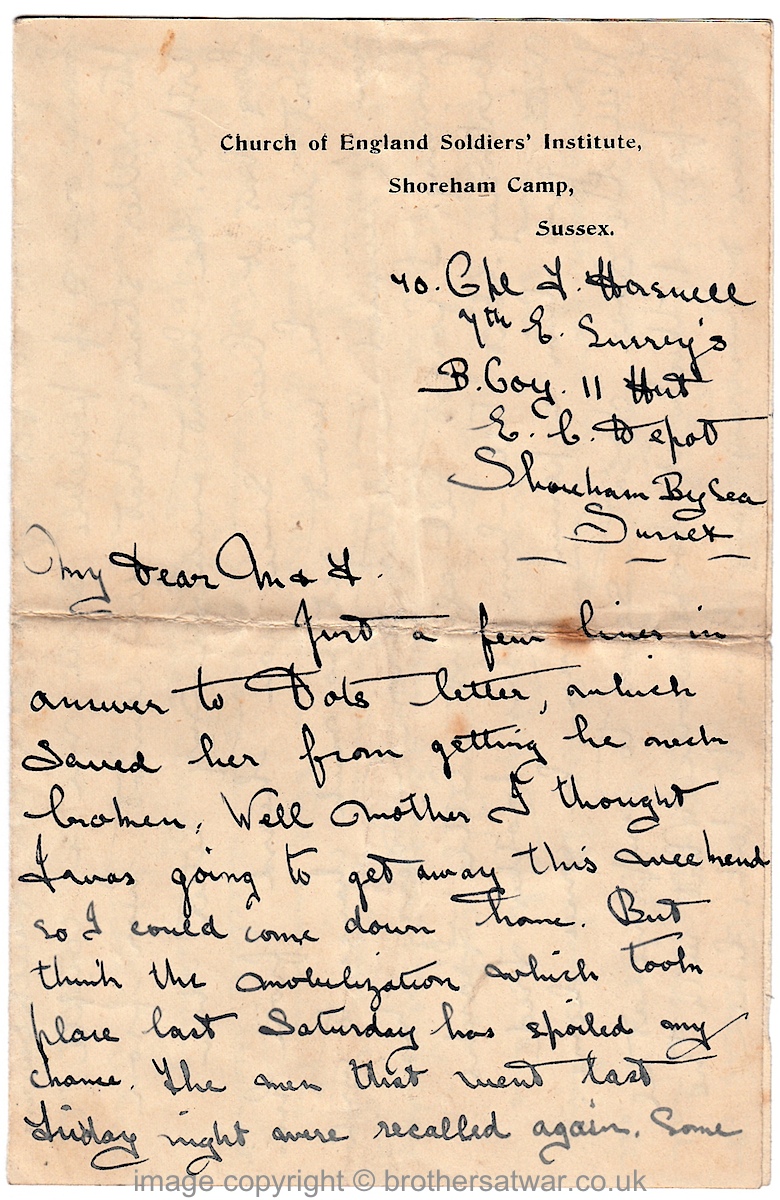 Church of England Soldiers' Institute,
Shoreham Camp,
Sussex.
Cpl F. Horsnell
7th E. Surrey's
B. Coy. 11 Hut
E. C. Depot
Shoreham By Sea
Sussex
My Dear M & F.
Just a few lines in
answer to Dots letter, which
saved her from getting he neck
broken, Well Mother I thought
I was going to get away this weekend
so I could come down home. But
think the mobilization which took
place last Saturday has spoiled my
chance. The men that went last
Friday night were recalled again. Some
image copyright © brothersatwar.co.uk